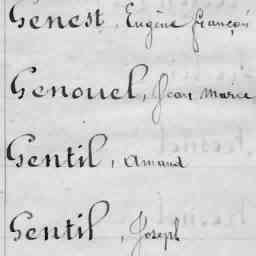 Genest, Eugène françois
Genouel, Jean Marie
Gentil, Amand
Gentil, Joseph